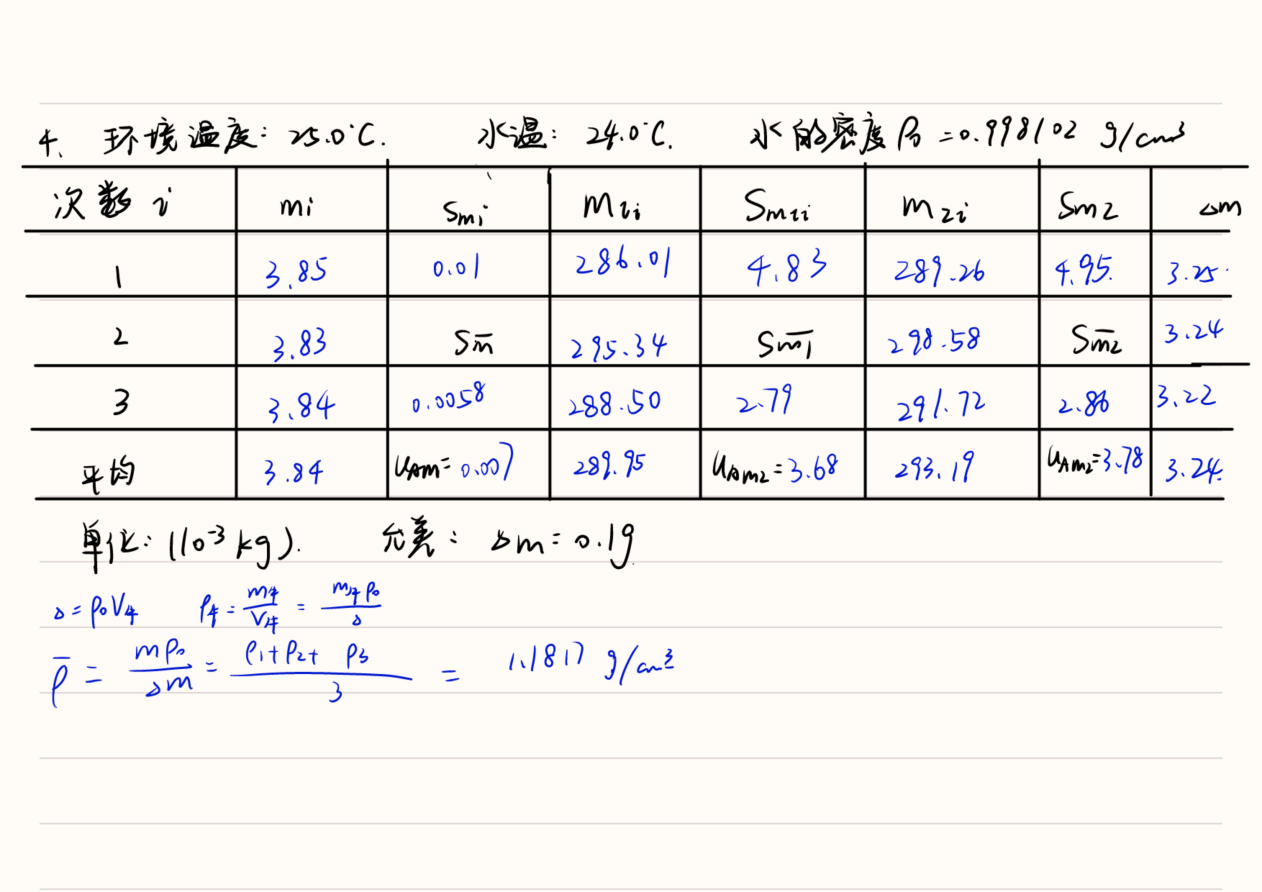 4. 环境温度: 25.0°C. 水温: 24.0°C. 水的密度 ρ₀=0.998102 g/cm³
次数 i mi Smi M1i Sm1i m2i Sm2 △m
1 3.85 0.01 286.01 4.83 289.26 4.95. 3.25
2 3.83 Sm̅ 295.34 Sm̅1̅ 298.58 Sm̅2 3.24
3 3.84 0.0058 288.50 2.79 291.72 2.86 3.22
平均 3.84 uAm=0.007 289.95 uAm2=3.68 293.19 uAm2=3.78 3.24
单位: (10⁻³kg). 允差: △m=0.1g
△=ρ₀V牛 ρ牛=m牛/V牛=m牛ρ₀/△
ρ̅=mρ₀/△m=(ρ1+ρ2+ρ3)/3=1.1817 g/cm³